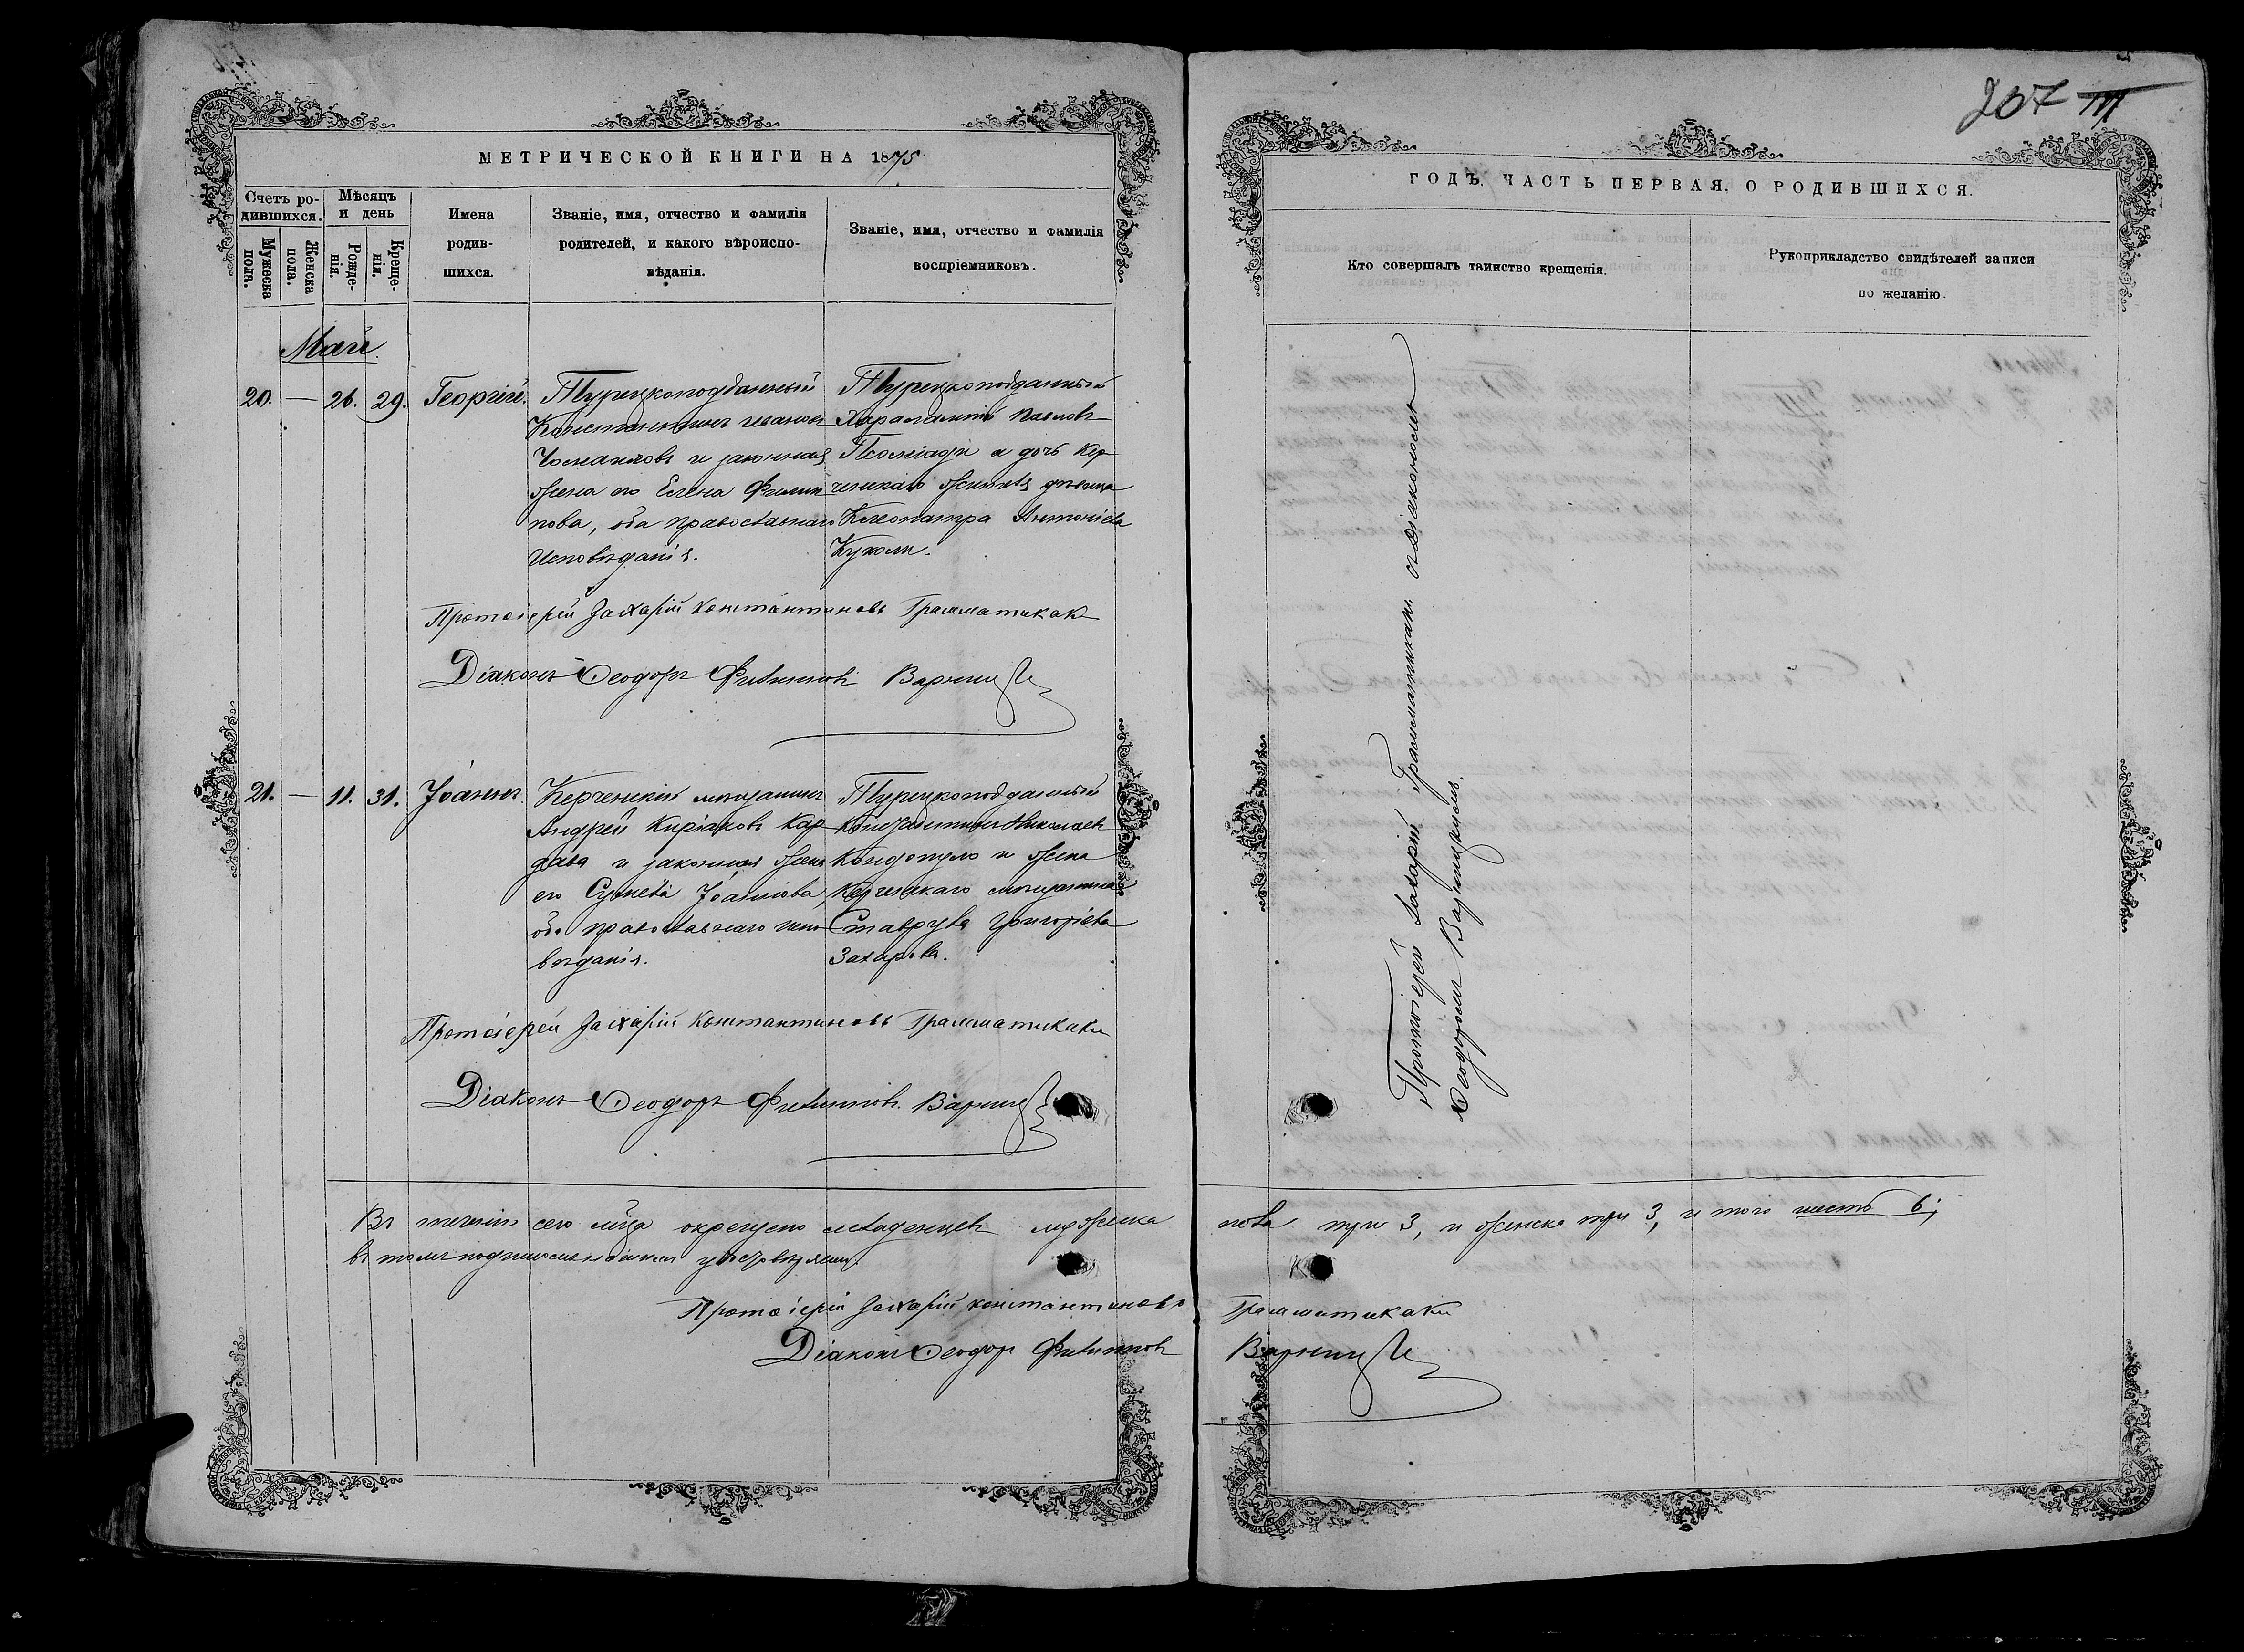 207
МЕТРИЧЕСКОЙ КНИГИ НА 1875
ГОДЪ, ЧАСТЬ ПЕРВАЯ, О РОДИВШИХСЯ.
Счетъ ро-
дившихся.
Мужеска
пола.
Женска
пола.
Мѣсяцъ
и день
Рожде-
нія.
Креще-
нія.
Имена
родив-
шихся.
Званіе, имя, отчество и фамилія
родителей, и какого вѣроиспо-
вѣданія.
Званіе, имя, отчество и фамилія
воспріемниковъ.
Кто совершалъ таинство крещенія.
Рукоприкладство свидѣтелей записи
по желанію.
Май
20. — 26. 29. Георгій.
Турецкоподданный
Константинъ Ивановъ
и законная
жена его Елена Филип
пова, оба православнаго
Исповѣданія.
Турецкоподданный
Харалампій Павловъ
и дочь Кер
ченскаго жителя дѣвица
Клеопатра Антоніева
Протоіерей Захарій Константиновъ Грамматикаки
Діаконъ Ѳеодоръ Филипповъ
21. — 11. 31. Іоаннъ.
Керченскій мѣщанинъ
Андрей Киріаковъ Кар
дава и законная жена
его Іоаннова,
оба православнаго испо
вѣданія.
Турецкоподданный
Константинъ Николаевъ
и жена
Керченскаго мѣщанина
Ставрула Григоріева
Захарова.
Протоіерей Захарій Константиновъ Грамматикаки
Діаконъ Ѳеодоръ Филипповъ
Протоіерей Захарій Грамматикаки съ Діакономъ
Ѳеодоромъ
Въ теченіи сего мѣца окрещено младенцевъ мужеска пола три 3, и женска три 3, и того шесть 6;
въ томъ подписомъ нашимъ удостовѣряемъ.
Протоіерей Захарій Константиновъ Грамматикаки
Діаконъ Ѳеодоръ Филипповъ